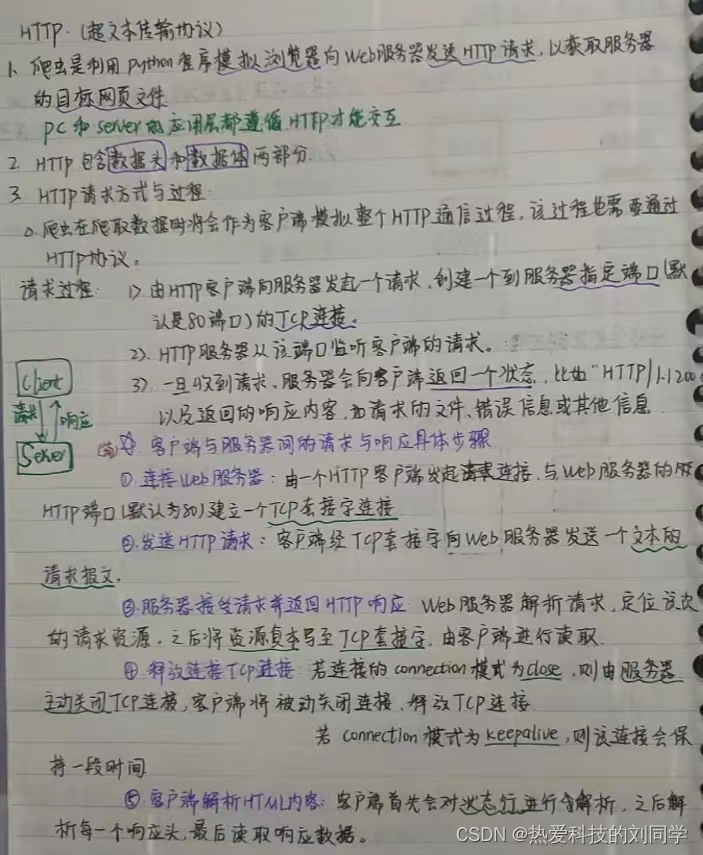 HTTP.(超文本传输协议)
1. 爬虫是利用python程序模拟浏览器向Web服务器发送HTTP请求,以获取服务器
的目标网页文件
PC和server的应用层都遵循HTTP才能交互
2. HTTP包含数据头和数据体两部分.
3. HTTP请求方式与过程.
爬虫在爬取数据时将会作为客户端模拟整个HTTP通信过程,该过程也需要通过
HTTP协议。
请求过程: 1). 由HTTP客户端向服务器发起一个请求,创建一个到服务器指定端口(默
认是80端口)的TCP连接。
2). HTTP服务器从该端口监听客户端的请求。
3). 一旦收到请求,服务器会向客户端返回一个状态,比如"HTTP/1.1 200
以及返回的响应内容,如请求的文件、错误信息或其他信息
Client
请求 响应
Server
客户端与服务器间的请求与响应具体步骤
① 连接Web服务器:由一个HTTP客户端发起连接,与Web服务器的
HTTP端口(默认为80)建立一个TCP套接字连接
②.发送HTTP请求:客户端经TCP套接字向Web服务器发送一个文本的
请求报文.
③.服务器接受请求并返回HTTP响应 Web服务器解析请求,定位该次
的请求资源.之后将资源复本写至TCP套接字,由客户端进行读取.
④ 释放连接TCP连接:若连接的connection模式为close,则由服务器
主动关闭TCP连接,客户端将被动关闭连接,释放TCP连接
若connection模式为keepalive,则该连接会保
持一段时间
⑤ 客户端解析HTML内容:客户端首先会对状态行进行解析,之后解
析每一个响应头,最后读取响应数据。
CSDN @热爱科技的刘同学